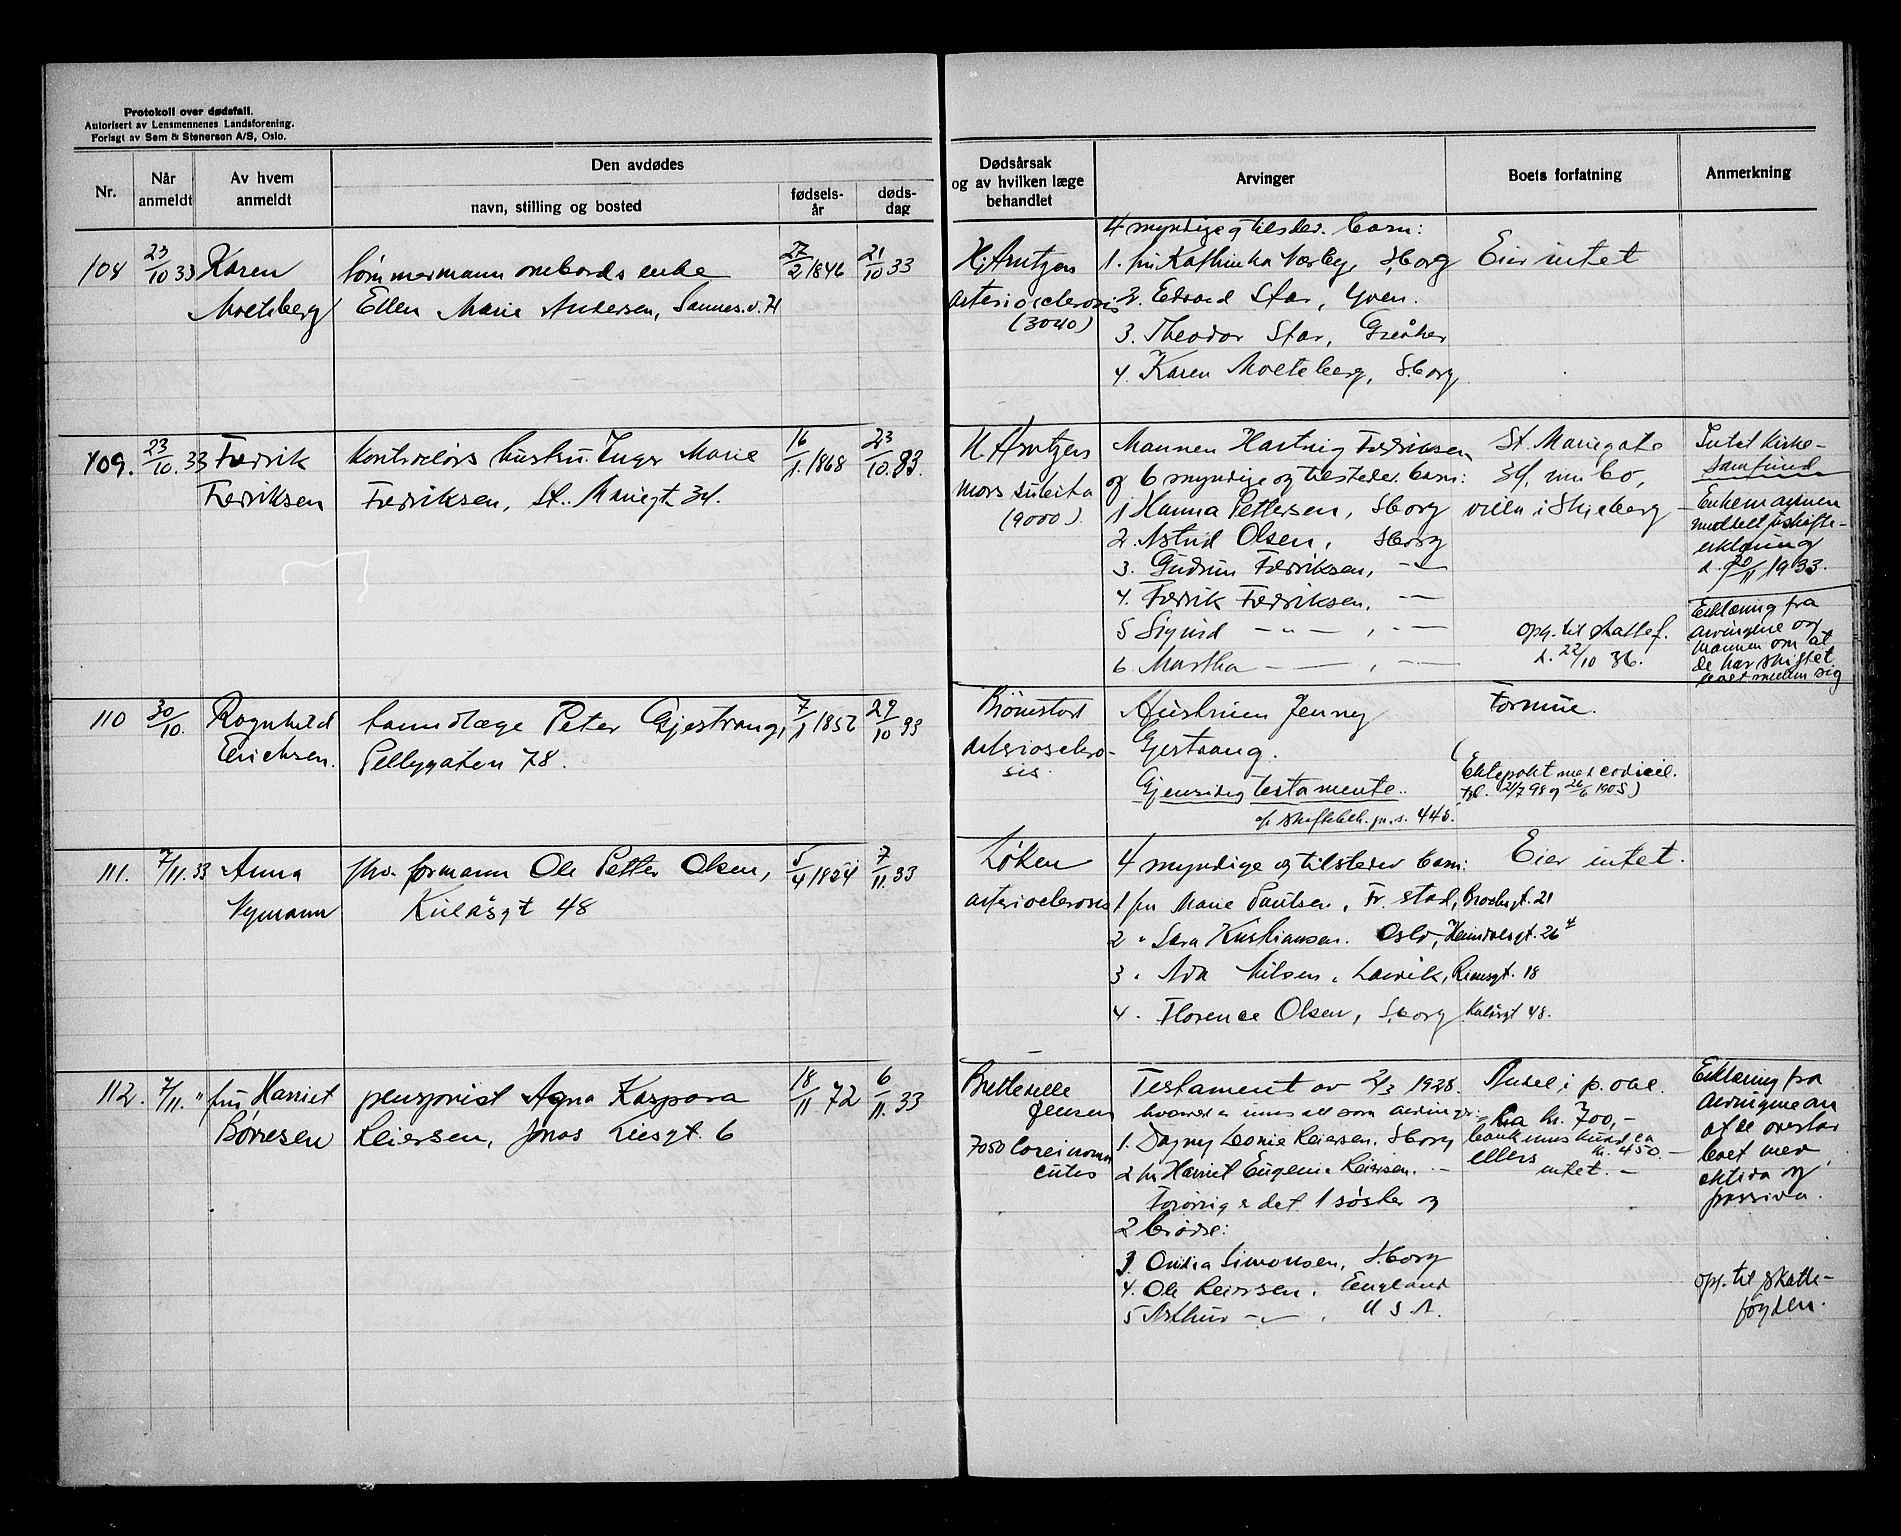 Protokoll over dødsfall.
Autorisert av Lensmennenes Landsforening.
Forlagt av Sem & Stenersen A/S, Oslo.
Nr.
Når anmeldt
Av hvem anmeldt
Den avdødes
navn, stilling og bosted
fødsels-år
døds-dag
Dødsårsak og av hvilken læge behandlet
Arvinger
Boets forfatning
Anmerkning
108 23/10 33 Karen
Moeteberg
tømmermann enke
Ellen Marie Andersen, Sannes.v. 21
27/2 1846 21/10 33
Hj Arntzen
arterioclerosis
(3040)
4 myndige og tilsted. barn:
1. fru Kathinka Nærby, Sborg
2. Edvard Star, Yven.
3. Theodor Star, Greåker
4. Karen Moeteberg, Sborg
Eier intet
109. 23/10. 33 Fredrik
Fredriksen
Kontrolørs hustru Inger Marie
Fredriksen, St. Mariegt 34.
16/1. 1868 23/10. 33.
H. Arntzen
mors subita
(9000)
Mannen Hartvig Fredriksen
og 6 myndige og tilstedev. barn:
1 Hanna Pettersen, Sborg
2. Astrid Olsen, Sborg
3. Gudrun Fredriksen, -"-
4. Fredrik Fredriksen, -"-
5 Sigurd - " - , - " -
6. Martha - - , - " -
St. Mariegate
34, inn bo,
villa i Skjeberg
opg. til skattef.
d. 22/10 36.
Intet kirke-
samfund
Enkemannen
meddelt skifte-
erklæring
d. 20/11 1933.
Erklæring fra
arvingene og
mannen om at
de har skiftet
boet mellem sig
110 30/10. Ragnhild
Erichsen.
tannlæge Peter Gjestrang,
Pellygaten 78.
7/1 1856 29/10 33
Bjørnstad
arterioschero-
sis.
Hustruen Jenny
Gjestrang.
Gjensidig testamente.
cfr skiftebeh. pr. s. 445.
Formue.
(Ektepakt med codicil.
tgl. 21/7 98 og 26/6 1905)
111. 7/11. 33 Anna
Nymann
fhv. formann Ole Petter Olsen,
Kulåsgt 48
5/4 1854 7/11. 33
Løken
arterioclerosis
4 myndige og tilstedev barn:
1 fru Marie Paulsen, Fr. stad, Brochsgt. 21
2 " Sara Kristiansen. Oslo, Heimdalsgt. 26 4
3 " Ada Nilsen, Larvik, Reinsgt. 18
4. Florence Olsen, Sborg Kulåsgt 48.
Eier intet.
112. 7/11. " fru Harriet
Børresen
pensjonist Agna Kaspara
Reiersen, Jonas Liesgt. 6
18/11 72 6/11. 33
Bretteville
Jensen
7050 Carcinoma
cutis
Testament av 2/3 1928.
1. Dagny Leonie Reiersen, Sborg
2 fru Harriet Eugenie Reiersen. -
Forøvrig er det 1 søster og
2 brødre:
3. Simonsen, Sborg
4. Ole Reiersen, England
5 Arthur -"- , U S A.
Andel i p. obl.
ca kr. 700,-
bankinnskudd, ca
kr. 450.-
ellers
intet. -
Erklæring fra
arvingene om
at de overtar
boet med
aktiva og
passiva.
opg. til skatte-
fogden.